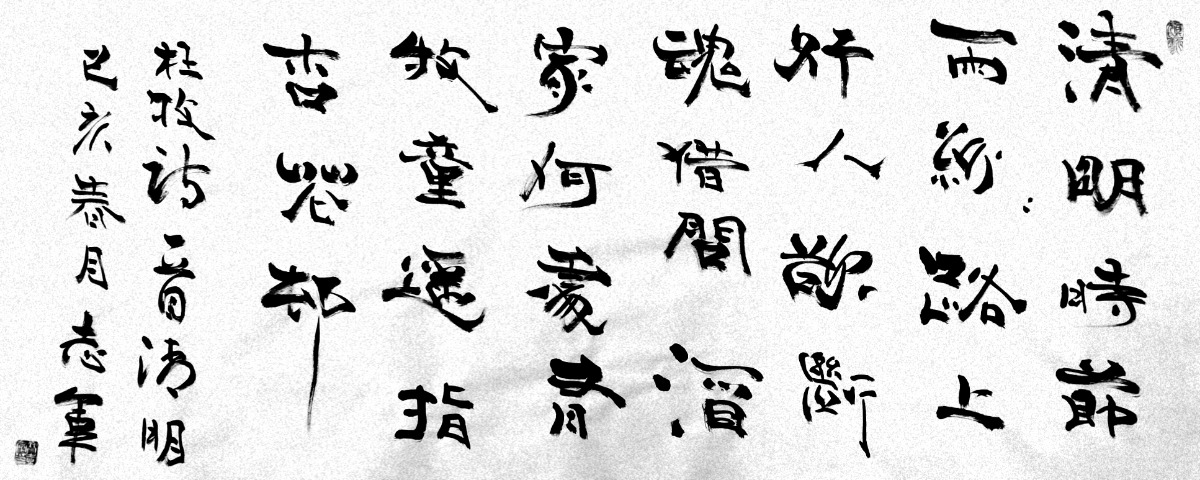 清明時節
雨紛〻路上
行人欲斷
魂借問酒
家何處有
牧童遥指
杏花邨
杜牧詩一首清明
己亥春月志軍